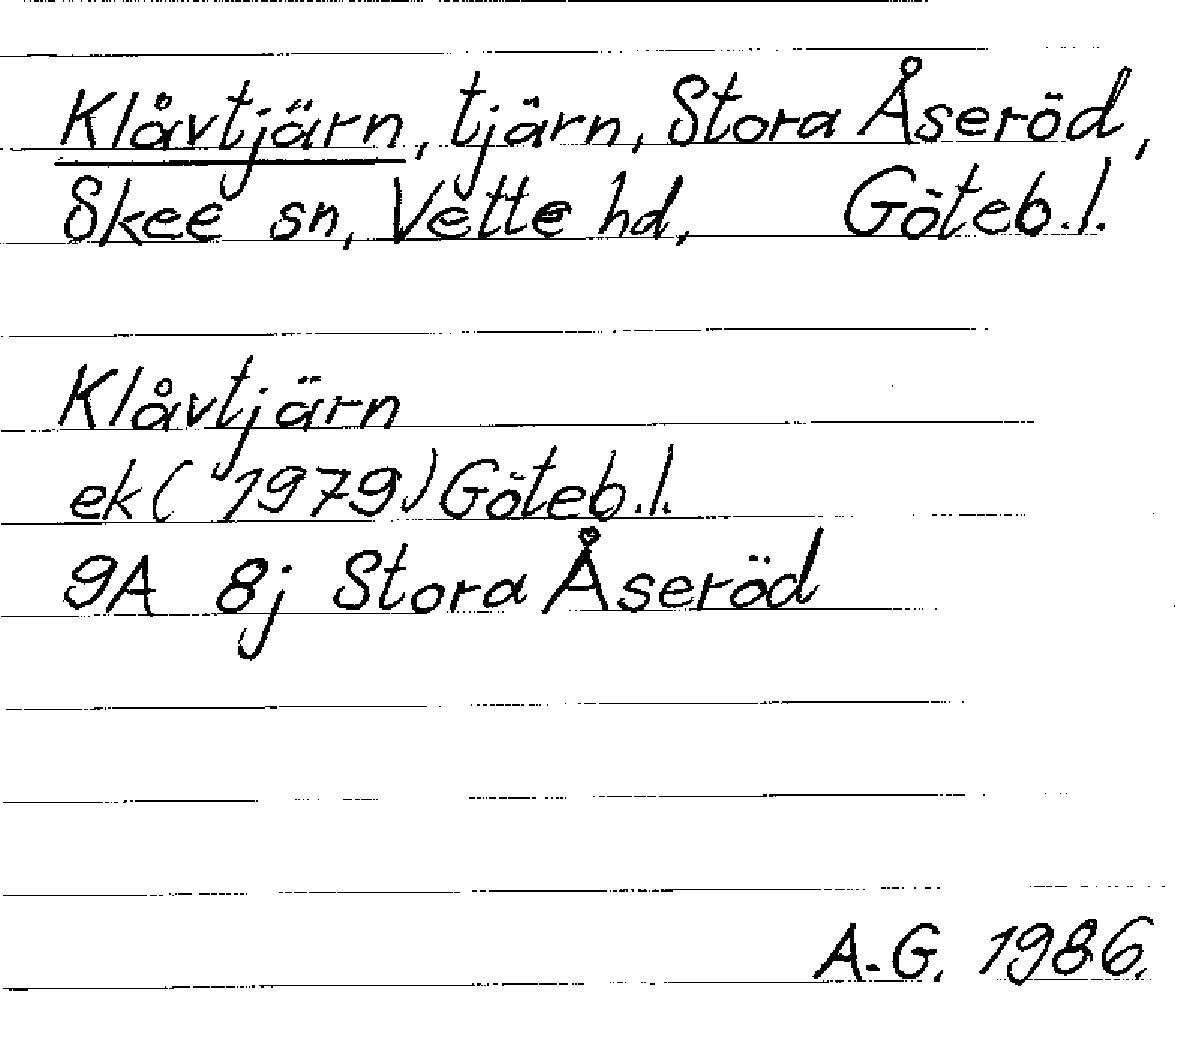 Klåvtjärn, tjärn, Stora Åseröd,
Skee sn, Vette hd, Göteb.l.
Klåvtjärn
ek (1979) Göteb.l.
9A 8j Stora Åseröd
A-G. 1986.